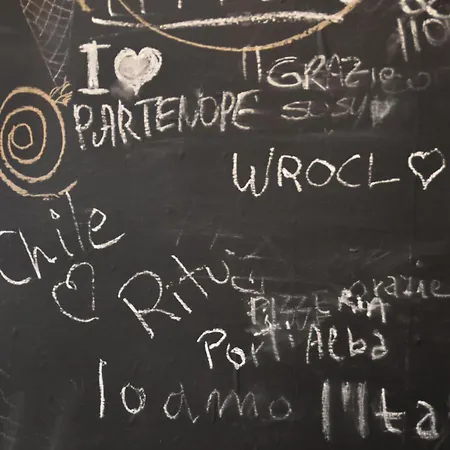 I ♡
PARTENOPE
GRAZIE
SUSY
WROCL ♡
Chile
♡ Ritu
grazie
PIZZERIA
Port'Alba
Io amo l'Ita